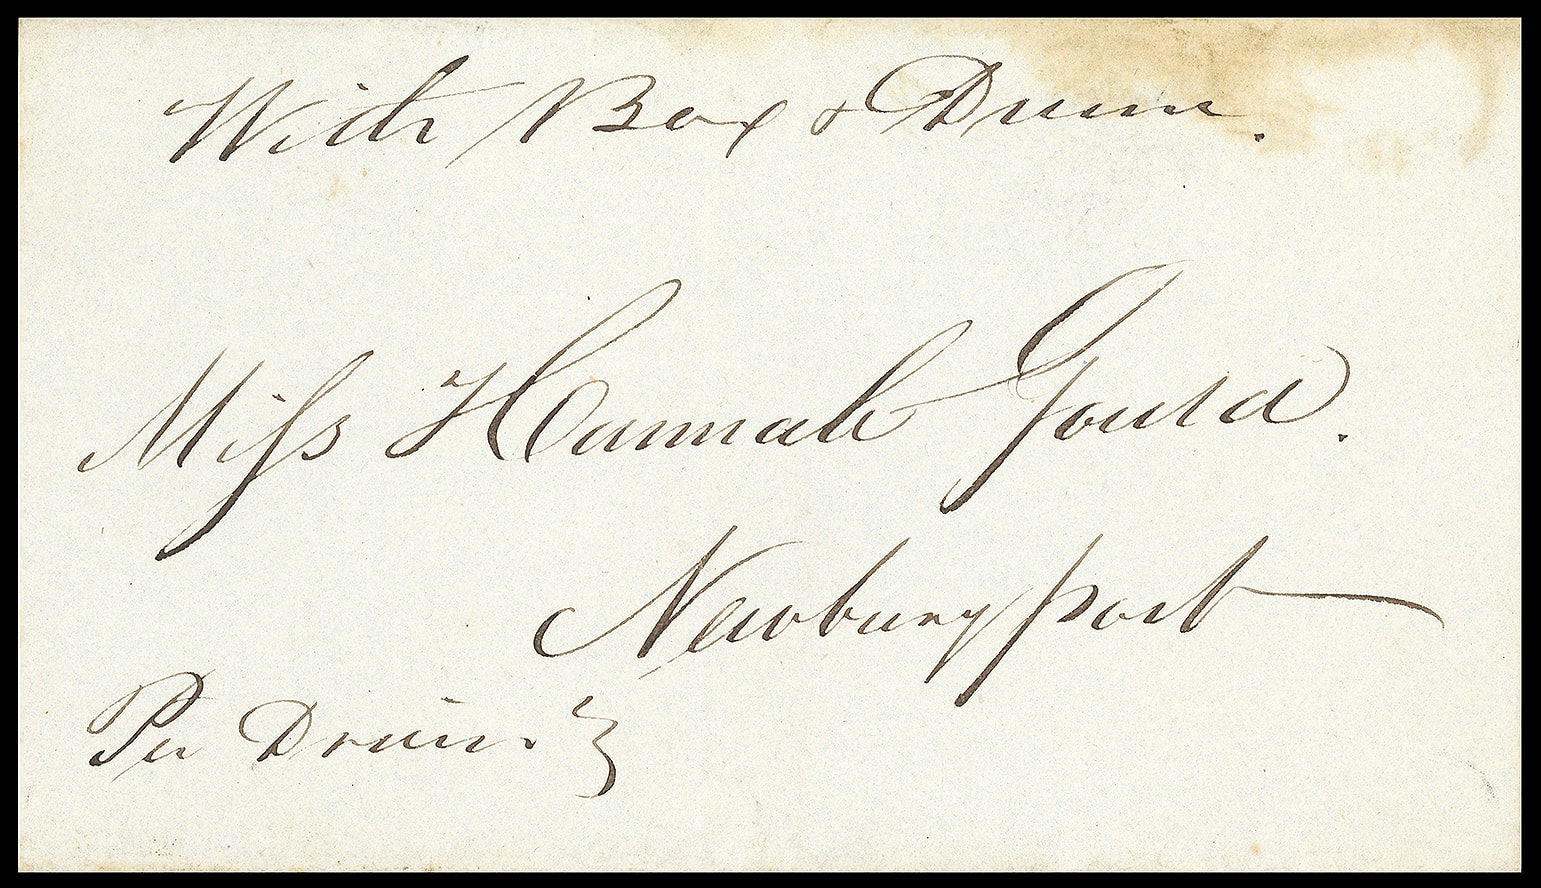 With Box & Drum.
Miss Hannah Gould.
Newburyport
Per Drum